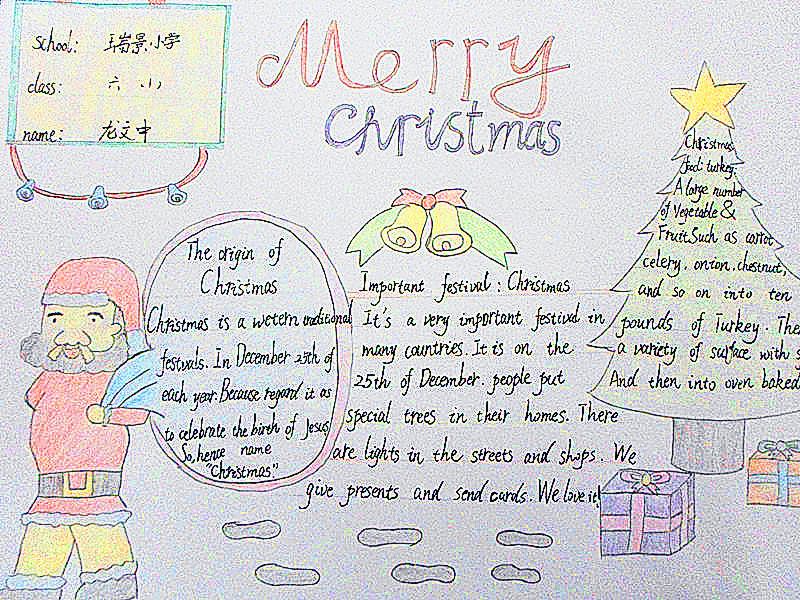 school: 瑞景小学
class: 六.小
name: 龙文中
Merry
Christmas
The origin of
Christmas
Christmas is a wetern traditional
festivals. In December 25th of
each year. Because regard it as
to celebrate the birth of Jesus
So, hence name
"Christmas"
Important festival: Christmas
It's a very important festival in
many countries. It is on the
25th of December. people put
special trees in their homes. There
are lights in the streets and shops. We
give presents and send cards. We love it!
Christmas
food: turkey.
A large number
of Vegetable &
Fruit. Such as carrot
celery. onion. chestnut,
and so on into ten
pounds of Turkey. The
a variety of surface with s
And then into oven baked